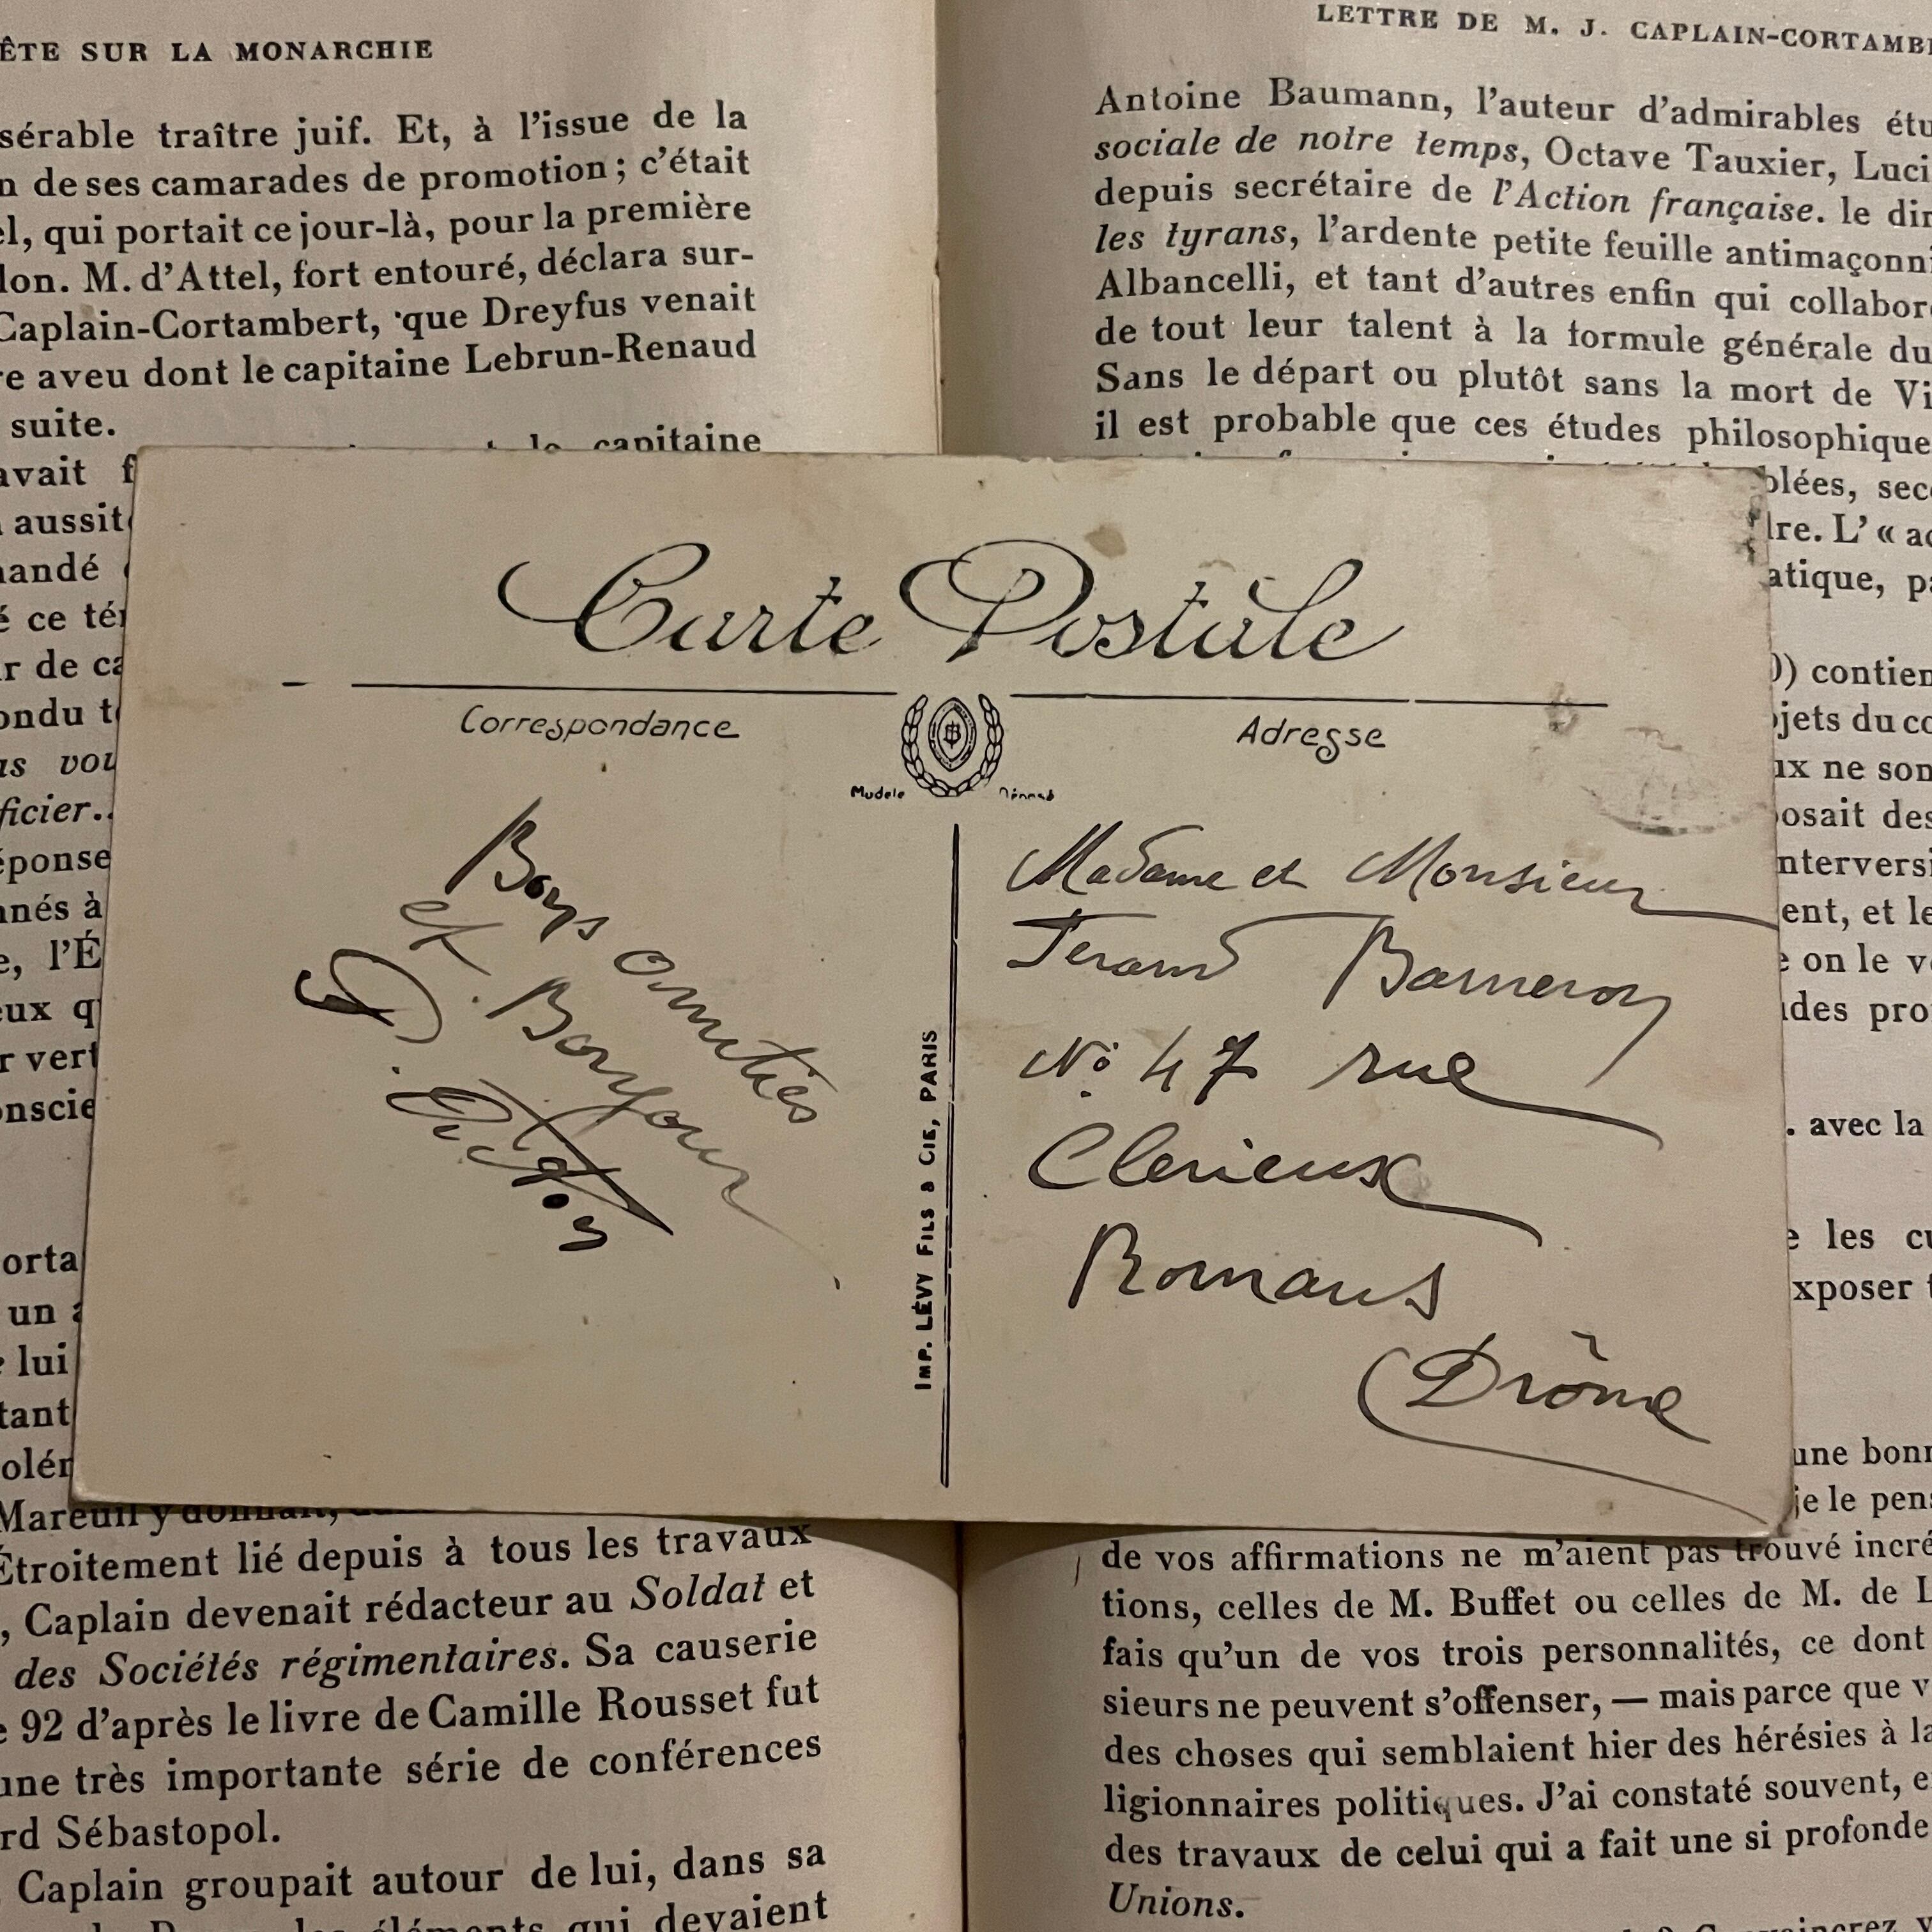 ÊTE SUR LA MONARCHIE
sérable traître juif. Et, à l'issue de la
n de ses camarades de promotion ; c'était
el, qui portait ce jour-là, pour la première
lon. M. d'Attel, fort entouré, déclara sur-
Caplain-Cortambert, que Dreyfus venait
re aveu dont le capitaine Lebrun-Renaud
suite.
le capitaine
avait f
aussit
mandé
é ce tér
r de ca
ondu t
us vou
ficier..
éponse
nnés à
e, l'É
eux q
r vert
onscie
orta
un a
e lui
tant
olér
Mareuil y donnait,
Étroitement lié depuis à tous les travaux
, Caplain devenait rédacteur au Soldat et
des Sociétés régimentaires. Sa causerie
e 92 d'après le livre de Camille Rousset fut
une très importante série de conférences
rd Sébastopol.
Caplain groupait autour de lui, dans sa
éléments qui devaient
LETTRE DE M. J. CAPLAIN-CORTAMBE
Antoine Baumann, l'auteur d'admirables étu
sociale de notre temps, Octave Tauxier, Luci
depuis secrétaire de l'Action française. le dir
les tyrans, l'ardente petite feuille antimaçonni
Albancelli, et tant d'autres enfin qui collabor
de tout leur talent à la formule générale du
Sans le départ ou plutôt sans la mort de Vi
il est probable que ces études philosophique
blées, sec
dre. L' « ac
atique, pa
0) contien
ojets du co
ux ne son
posait des
nterversi
ent, et le
e on le v
ades pro
. avec la
e les cu
xposer t
une bonn
je le pens
de vos affirmations ne m'aient pas trouvé incré
tions, celles de M. Buffet ou celles de M. de L
fais qu'un de vos trois personnalités, ce dont
sieurs ne peuvent s'offenser, — mais parce que v
des choses qui semblaient hier des hérésies à la
ligionnaires politiques. J'ai constaté souvent, e
des travaux de celui qui a fait une si profonde
Unions.
Carte Postale
Correspondance
Adresse
Modèle Déposé
Bons amitiés
et Bonjour
IMP. LÉVY FILS & CIE, PARIS
Madame et Monsieur
No 47 rue
Clerieux
Romans
(Drôme